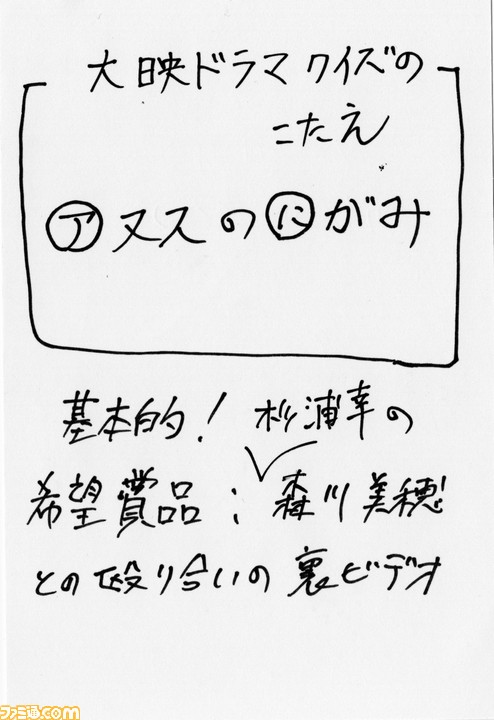 大映ドラマクイズの
こたえ
アヌスのにがみ
基本的！杉浦幸の
希望賞品：森川美穂
との殴り合いの裏ビデオ
ファミ通.com